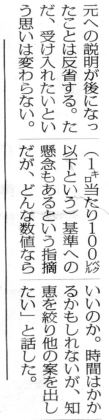 元への説明が後になっ
たことは反省する。た
だ、受け入れたいとい
う思いは変わらない。
（1㌔当たり100ベクレル
以下という）基準への
懸念もあるという指摘
だが、どんな数値なら
いいのか。時間はかか
るかもしれないが、知
恵を絞り他の案を出し
たい」と話した。